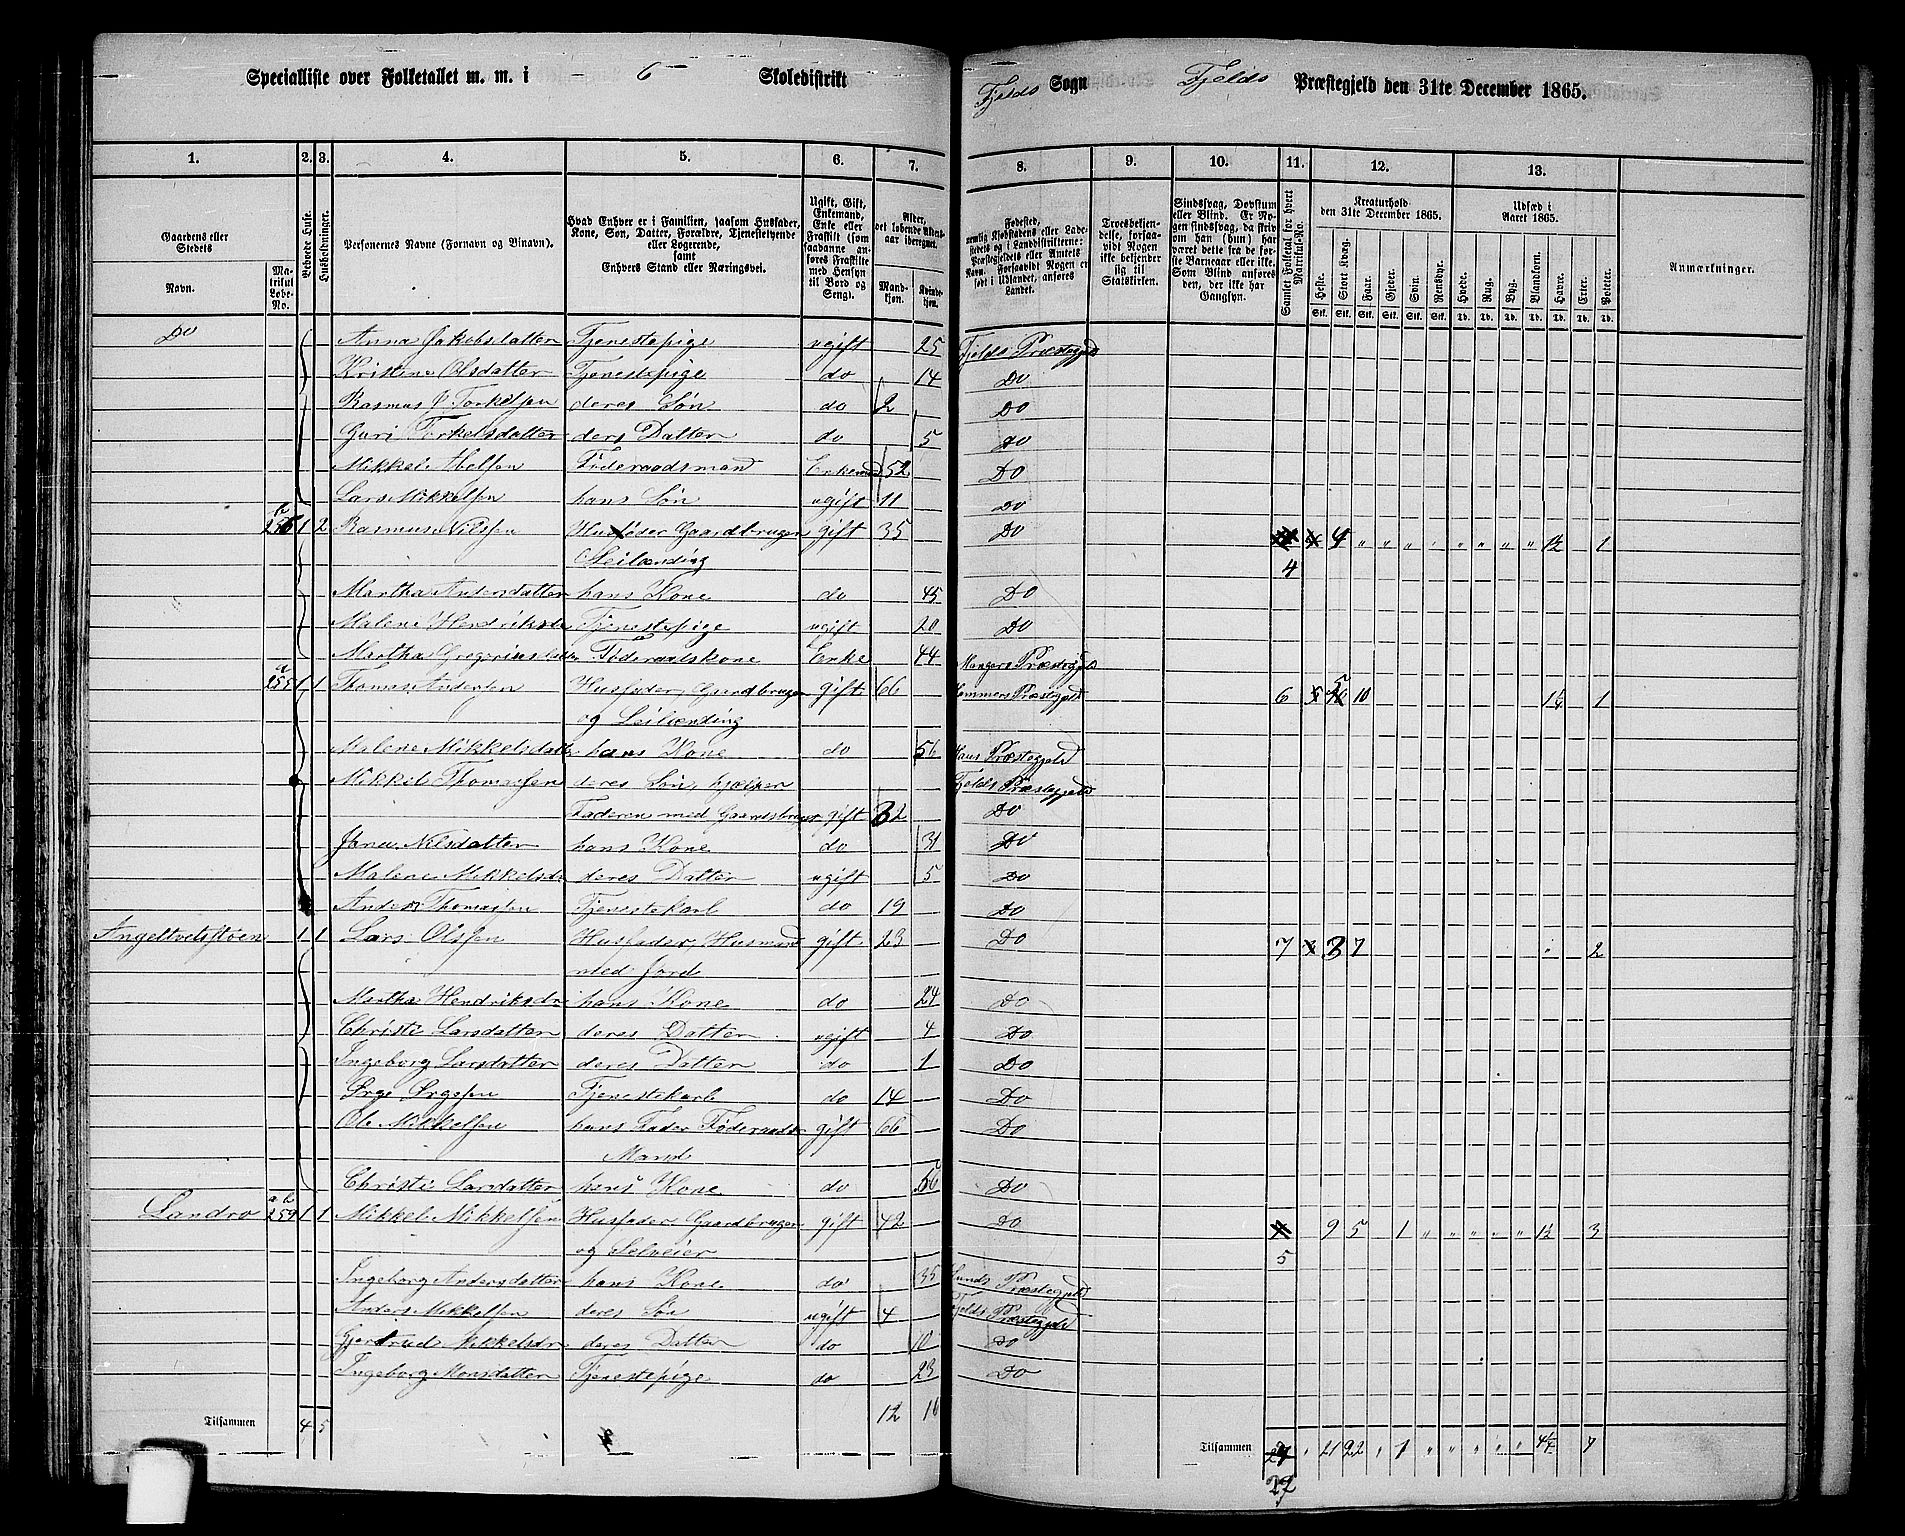 Specialliste over Folketallet m. m. i 6 Skoledistrikt Fjelds Sogn Fjelds Præstegjeld den 31te December 1865.
1. 2. 3. 4. 5. 6. 7. 8. 9. 10. 11. 12. 13.
Gaardens eller Stedets Navn. Matrikul Løbe-No. Beboede Huse. Husholdninger. Personernes Navne (Fornavn og Tilnavn). Hvad Enhver er i Familien, saasom Husfader, Kone, Søn, Datter, Forældre, Tjenestetyende eller Logerende, samt Enhvers Stand eller Næringsvei. Ugift, Gift, Enkemand, Enke eller Fraskilt (som saadanne anføres Fraskilte med Hensyn til Bord og Seng). Alder, det løbende Alders-aar iberegnet. Mandkjøn. Kvindekjøn. Fødested, nemlig Kjøbstadens eller Ladestedets og i Landdistrikterne: Præstegjeldets eller Amtets Navn. Forsaavidt Nogen er født i Udlandet, anføres Landet. Troesbekjendelse, forsaavidt Nogen ikke bekjender sig til Statskirken. Sindssvag, Døvstum eller Blind. Er Nogen sindssvag, da skriv om han (hun) har været dette fra de første Barneaar eller ikke. Som Blind anføres den, der ikke har Gangsyn. Samlet Folketal for hvert Matrikul-No. Kreaturhold den 31te December 1865. Udsæd i Aaret 1865. Anmærkninger.
Heste. Stort Kvæg. Faar. Gjeder. Svin. Rensdyr. Hvede. Rug. Byg. Blandkorn. Havre. Erter. Poteter.
Do Anna Jakobsdatter Tjenestepige ugift 25 Fjelds Præstegjeld
Kristine Olsdatter Tjenestepige do 14 Do
Rasmus Torkelsen deres Søn do 2 Do
Guri Torkelsdatter deres Datter do 5 do
Mikkel Abelsen Føderaadsmand Enkemand 52 Do
Lars Mikkelsen hans Søn ugift 11 Do
1 2 Rasmus Nilssen Husfader Gaardbruger gift 35 Do 4 " " " " " " " " 1½ 1
Leilænding 4
Martha Andersdatter hans Kone do 45 Do
Malene Hendriksdr Tjenestepige ugift 20 Do
Martha Gregoriusdatter Føderaadskone Enke 44 Mangers Præstegjeld
a 255 1 1 Thomas Andersen Husfader, Gaardbruger gift 66 Hammers Præstegjeld 6 5 10 1¼ 1
og Leilænding
Malene Mikkelsdatter hans Kone do 56 Hans Præstegjeld
Mikkel Thomassen deres Søn, hjælper Fjelds Præstegjeld
Faderen med Gaardsbruget gift 32 Do
Jana Nilsdatter hans Kone do 31 Do
Malene Mikkelsdr deres Datter ugift 5 Do
Anders Thomassen Tjenestekarl do 19 Do
Angeltvetstøen 1 1 Lars Olssen Husfader, Husmand gift 23 Do 7 3 7 2
med Jord
Martha Hendriksdr hans Kone do 24 Do
Christi Larsdatter deres Datter ugift 4 Do
Ingeborg Larsdatter deres Datter do 1 Do
Ørge Ørgesen Tjenestekarl do 14 Do
Ole Mikkelsen hans Fader Føderaads gift 66 Do
Mand
Christi Larsdatter hans Kone do 56 Do
Landro a b 259 1 1 Mikkel Mikkelsen Husfader, Gaardbruger gift 42 Do 9 5 1 " " " " " 1½ 3
og Selveier 5
Ingeborg Andersdatter hans Kone do 35 Sunds Præstegjeld
Anders Mikkelsen deres Søn ugift 4 Fjelds Præstegjeld
Gjertrud Mikkelsdr deres Datter do 10 Do
Ingeborg Monsdatter Tjenestepige do 23 Do
Tilsammen 4 5 12 16 Tilsammen 21 22 " 1 " " " " " 4¼ 7
27